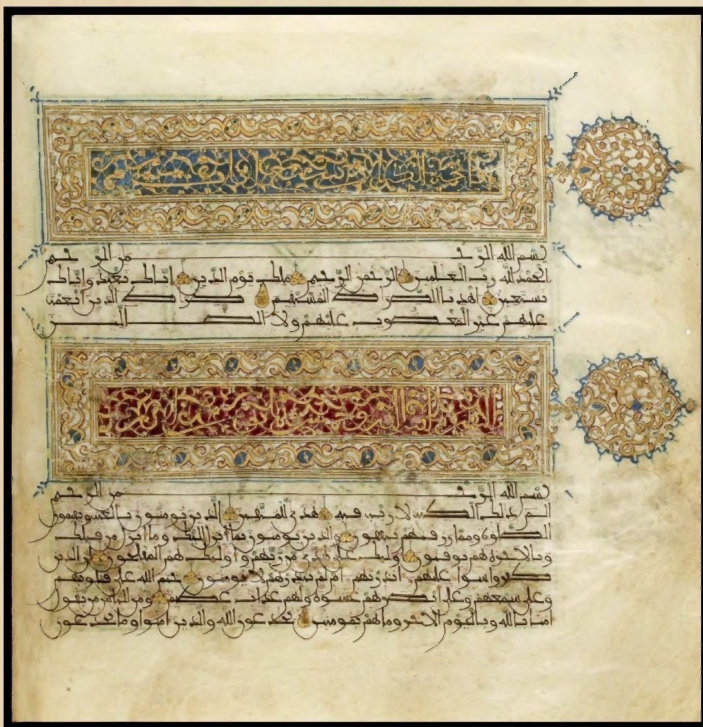 فاتحة الكتاب
بسم الله الرحمن الرحيم
الحمد لله رب العلمين الرحمن الرحيم ملك يوم الدين إياك نعبد وإياك
نستعين اهدنا الصراط المستقيم صراط الذين أنعمت
عليهم غير المغضوب عليهم ولا الضالين
بسم الله الرحمن الرحيم
الم ذلك الكتب لا ريب فيه هدى للمتقين الذين يومنون بالغيب ويقيمون
الصلوة ومما رزقنهم ينفقون والذين يومنون بما أنزل إليك وما أنزل من قبلك
وبالاخرة هم يوقنون أوليك على هدى من ربهم وأوليك هم المفلحون إن الذين
كفروا سواء عليهم ءانذرتهم أم لم تنذرهم لا يومنون ختم الله على قلوبهم
وعلى سمعهم وعلى أبصرهم غشوة ولهم عذاب عظيم ومن الناس من يقول
ءامنا بالله وباليوم الاخر وما هم بمومنين يخدعون الله والذين ءامنوا وما يخدعون